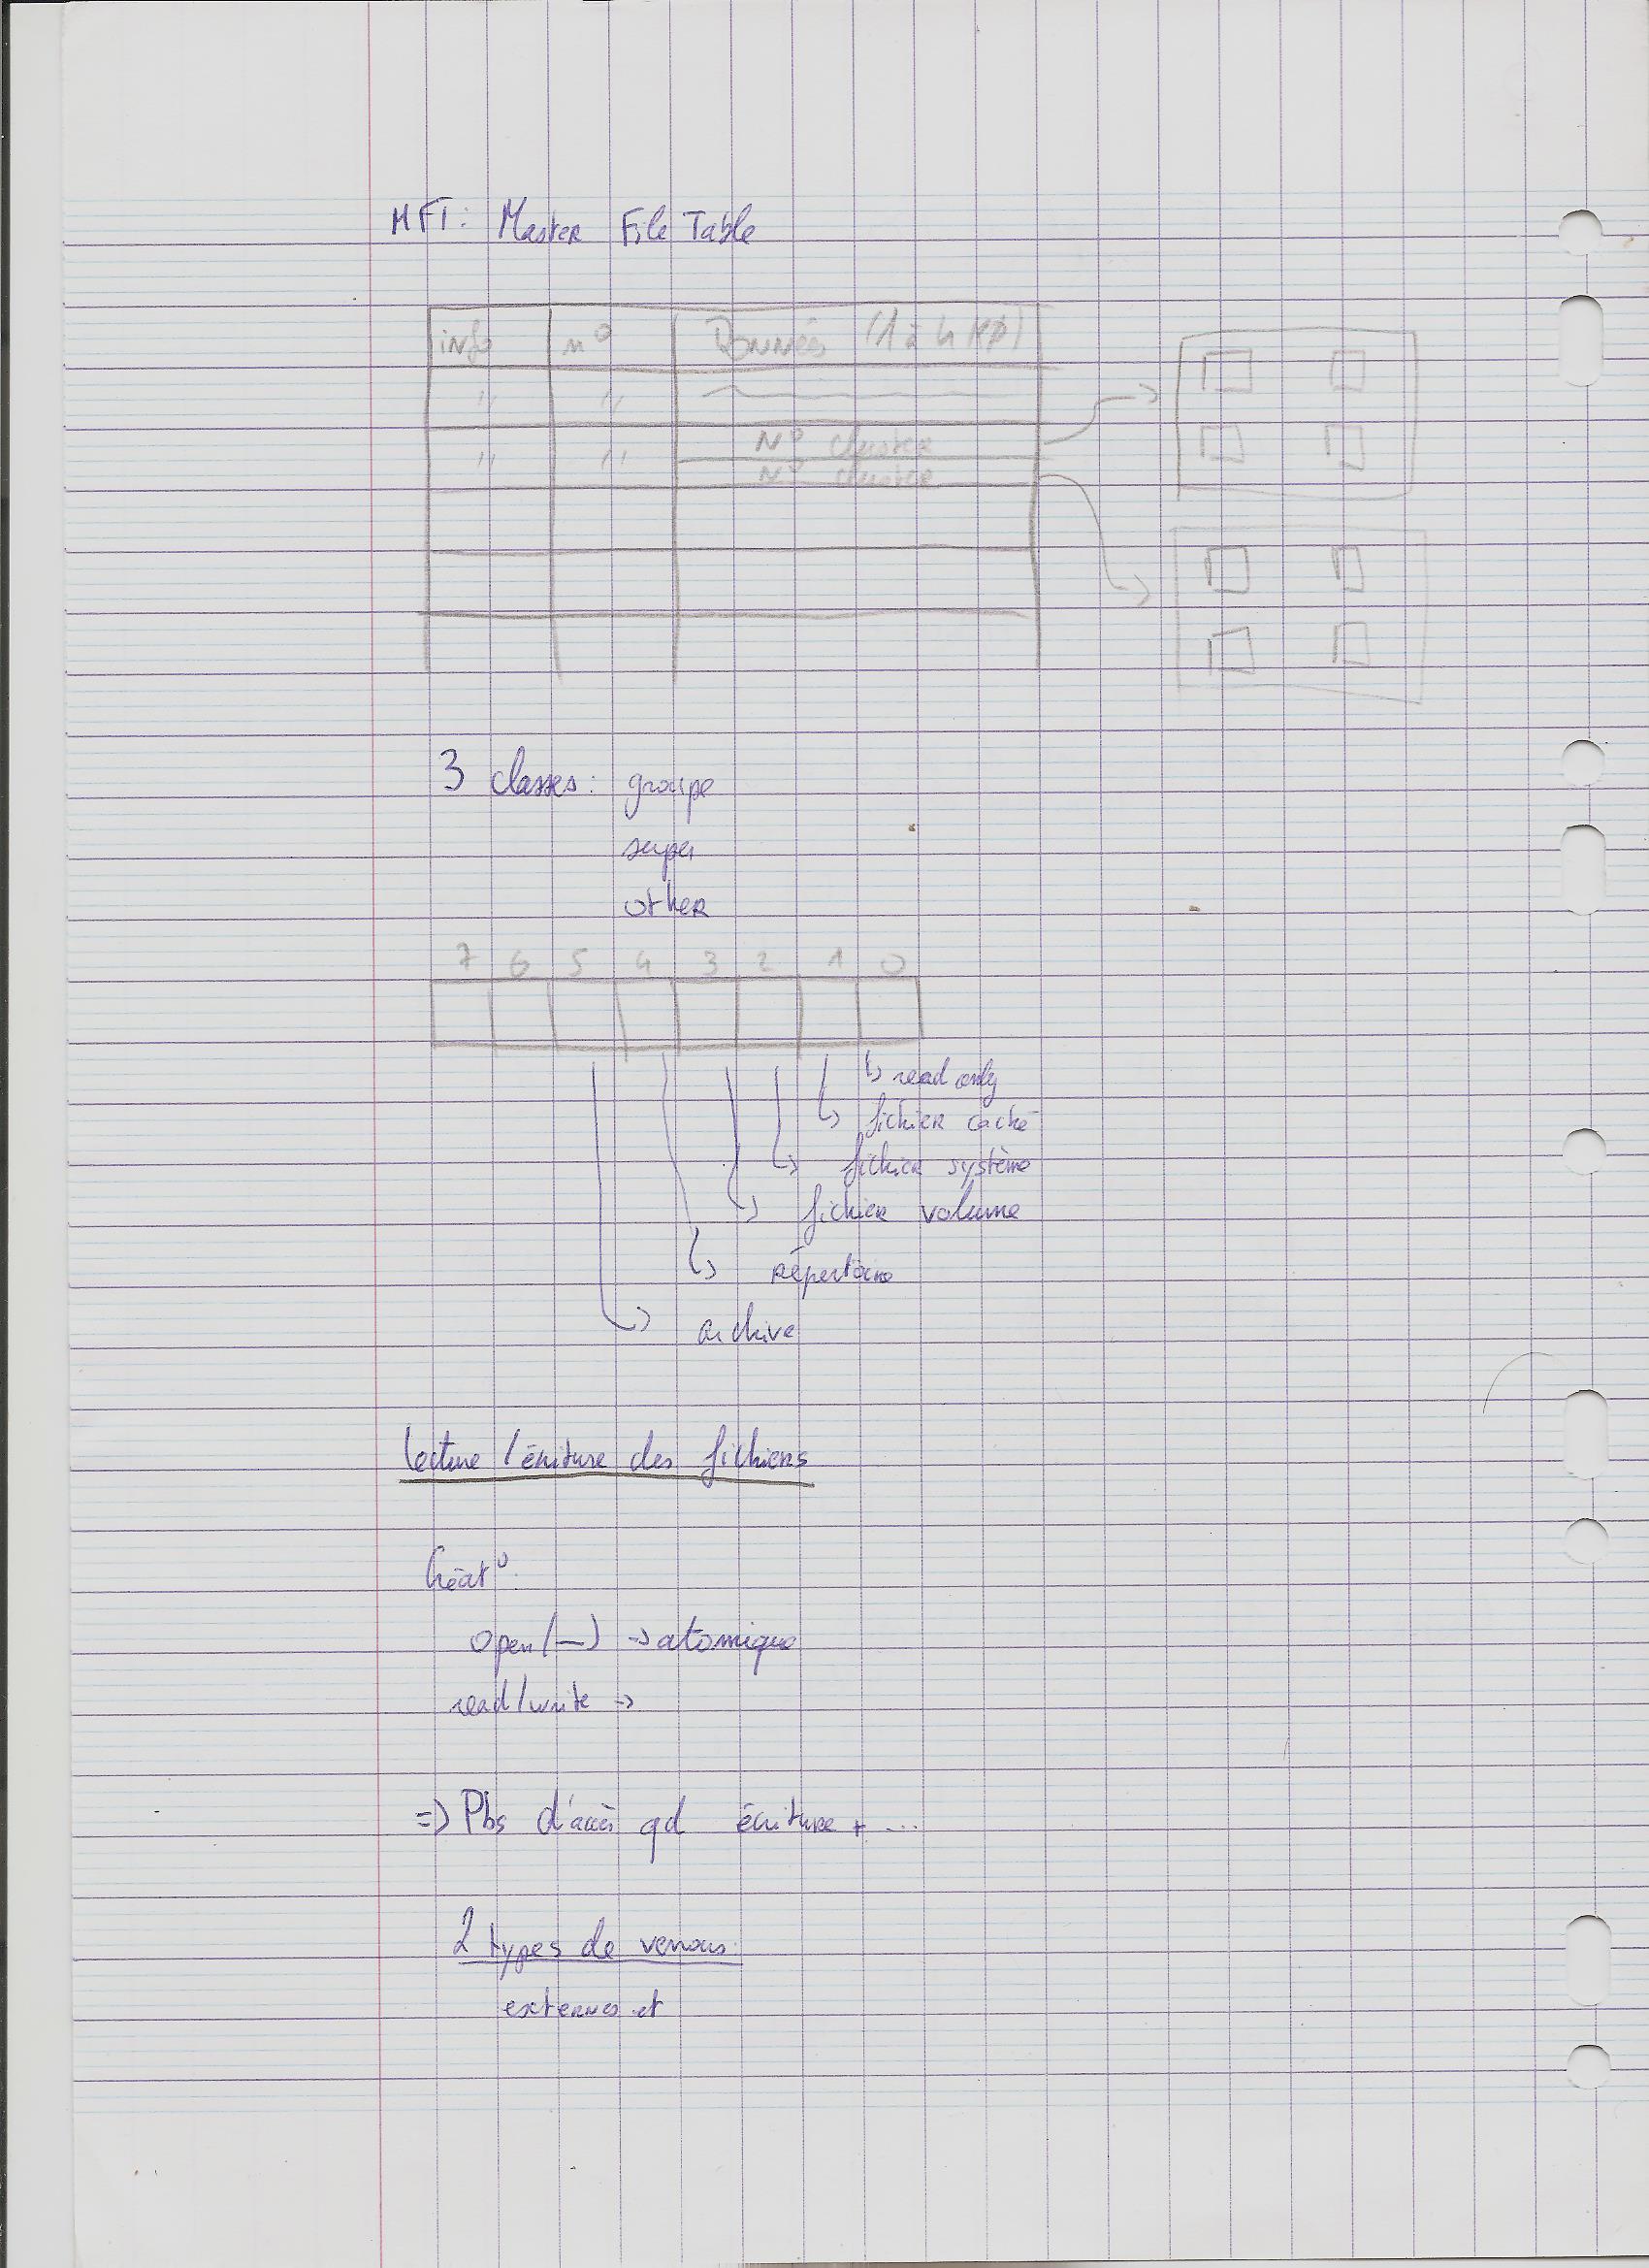 MFT: Master File Table
info n° Données (1 à 4 Kø)
" "
N° cluster
" " N° cluster
3 classes: groupe
super
other
7 6 5 4 3 2 1 0
read only
fichier caché
fichier système
fichier volume
répertoire
archive
lecture / écriture des fichiers
Créat°:
open(—) -> atomique
read/write ->
=> Pbs d'accès qd écriture + ...
2 types de verrous:
externes et